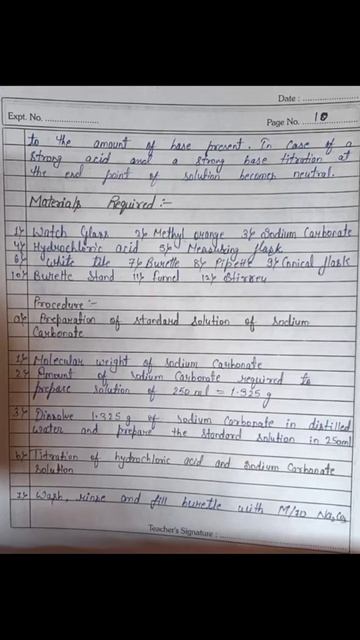 Date : ....................
Expt. No. ....................
Page No. 10
to the amount of base present. In case of a
strong acid and a strong base titration at
the end point of solution becomes neutral.
Materials Required :-
1) Watch Glass 2) Methyl orange 3) Sodium Carbonate
4) Hydrochloric acid 5) Measuring flask
6) White tile 7) Burette 8) Pipette 9) Conical flask
10) Burette Stand 11) Funnel 12) Stirrer
Procedure :-
a) Preparation of standard solution of Sodium
Carbonate
1) Molecular weight of Sodium Carbonate
2) Amount of sodium Carbonate required to
prepare solution of 250 ml = 1.325 g
3) Dissolve 1.325 g of sodium Carbonate in distilled
water and prepare the standard solution in 250ml
b) Titration of hydrochloric acid and Sodium Carbonate
solution
1) Wash, rinse and fill burette with M/20 Na₂CO₃
Teacher's Signature : ....................